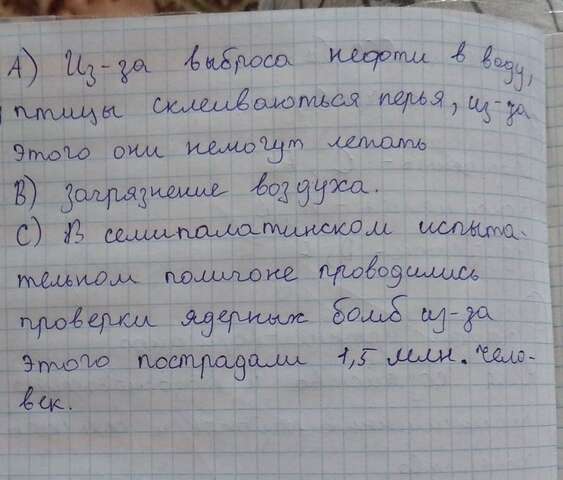 А) Из-за выброса нефти в воду,
птицы склеиваються перья, из-за
этого они немогут летать
В) Загрязнение воздуха.
С) В семипалатинском испыта-
тельном полигоне проводились
проверки ядерных бомб из-за
этого пострадали 1,5 млн. чело-
век.